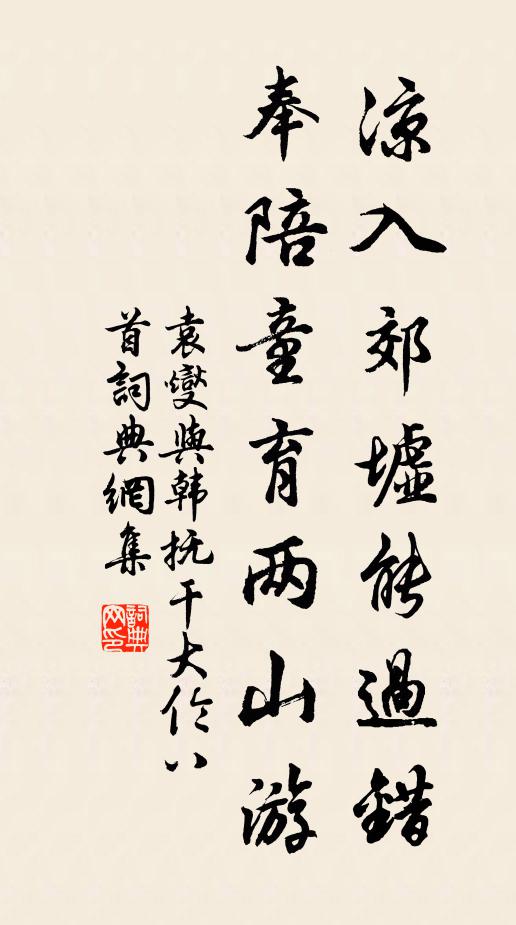 涼入郊墟能過錯
奉陪童育两山游
袁燮與韓抚干大伦八
首詞典網集
詞典网印